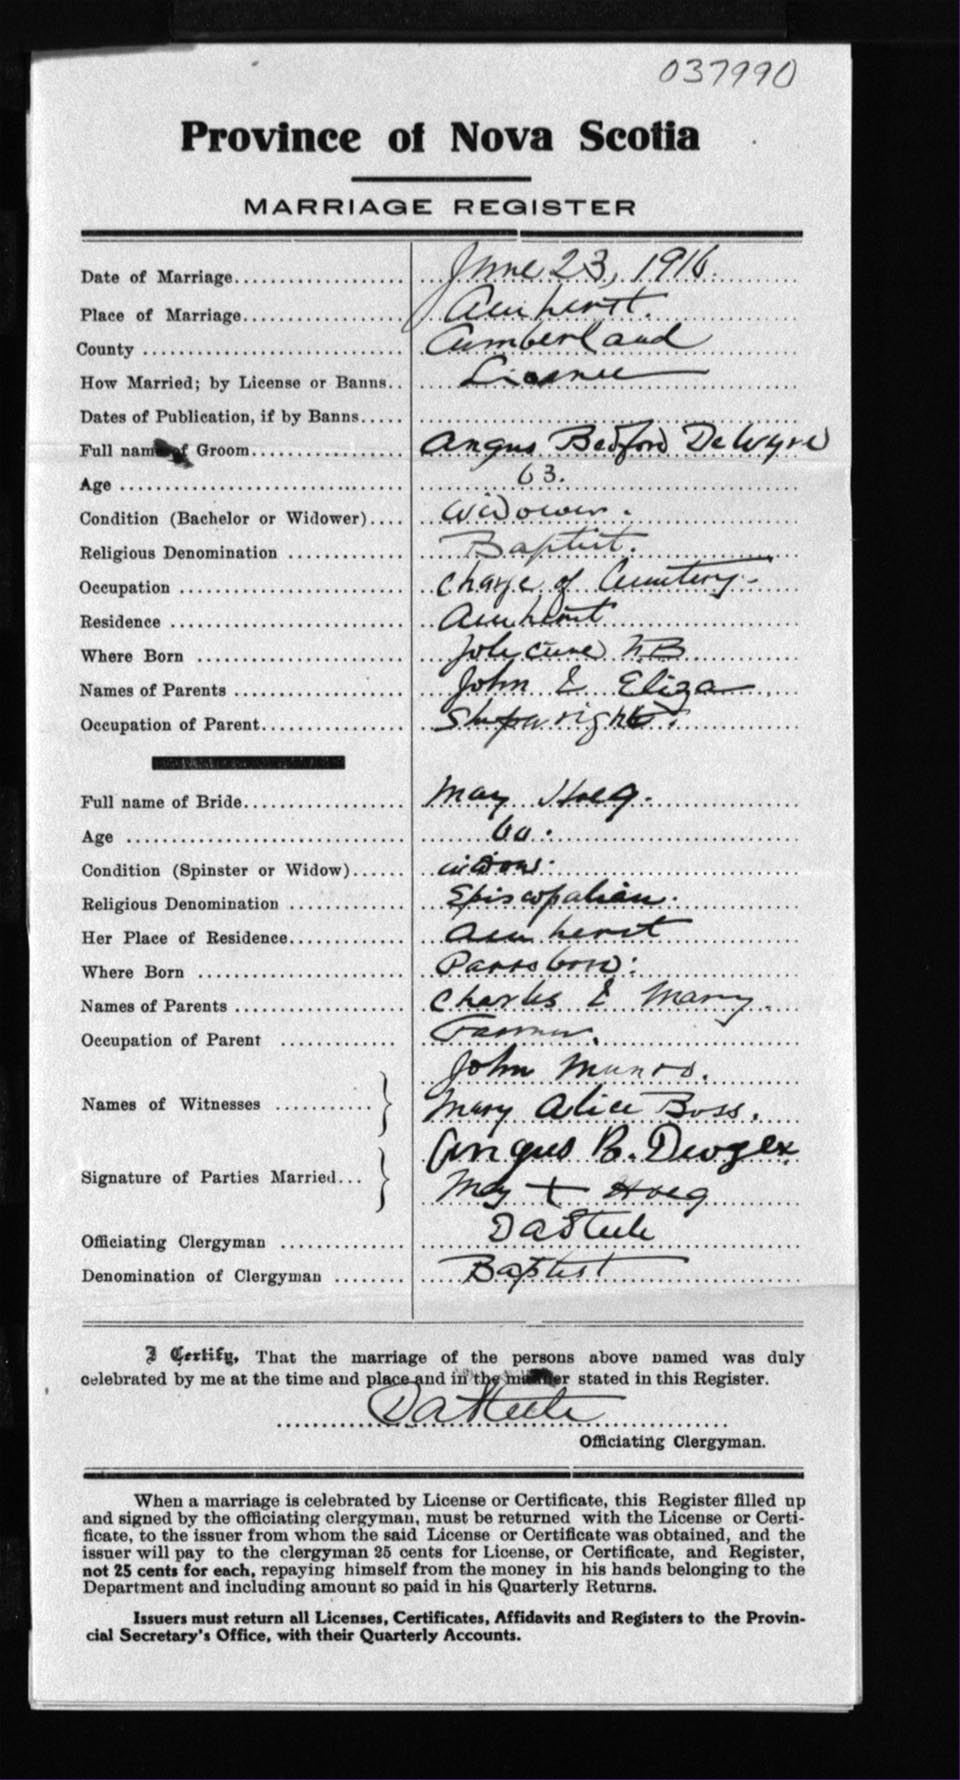 037990
Province of Nova Scotia
MARRIAGE REGISTER
Date of Marriage June 23, 1916.
Place of Marriage Amherst.
County Cumberland
How Married; by License or Banns License
Dates of Publication, if by Banns
Full name of Groom Angus Bedford
Age 63.
Condition (Bachelor or Widower) Widower.
Religious Denomination Baptist.
Occupation charge of Cemetery.
Residence Amherst
Where Born Jolycure N.B
Names of Parents John & Eliza
Occupation of Parent Shipwright.
Full name of Bride May Hoeg.
Age 60.
Condition (Spinster or Widow) widow.
Religious Denomination Episcopalian.
Her Place of Residence Amherst
Where Born Parrsboro.
Names of Parents Charles & Mary.
Occupation of Parent Farmer.
John Munro.
Names of Witnesses Mary Alice Boss.
Angus B.
Signature of Parties Married May + Hoeg
Officiating Clergyman DA Steele
Denomination of Clergyman Baptist
I Certify, That the marriage of the persons above named was duly
celebrated by me at the time and place and in the manner stated in this Register.
DA Steele
Officiating Clergyman.
When a marriage is celebrated by License or Certificate, this Register filled up
and signed by the officiating clergyman, must be returned with the License or Certi-
ficate, to the issuer from whom the said License or Certificate was obtained, and the
issuer will pay to the clergyman 25 cents for License, or Certificate, and Register,
not 25 cents for each, repaying himself from the money in his hands belonging to the
Department and including amount so paid in his Quarterly Returns.
Issuers must return all Licenses, Certificates, Affidavits and Registers to the Provin-
cial Secretary's Office, with their Quarterly Accounts.